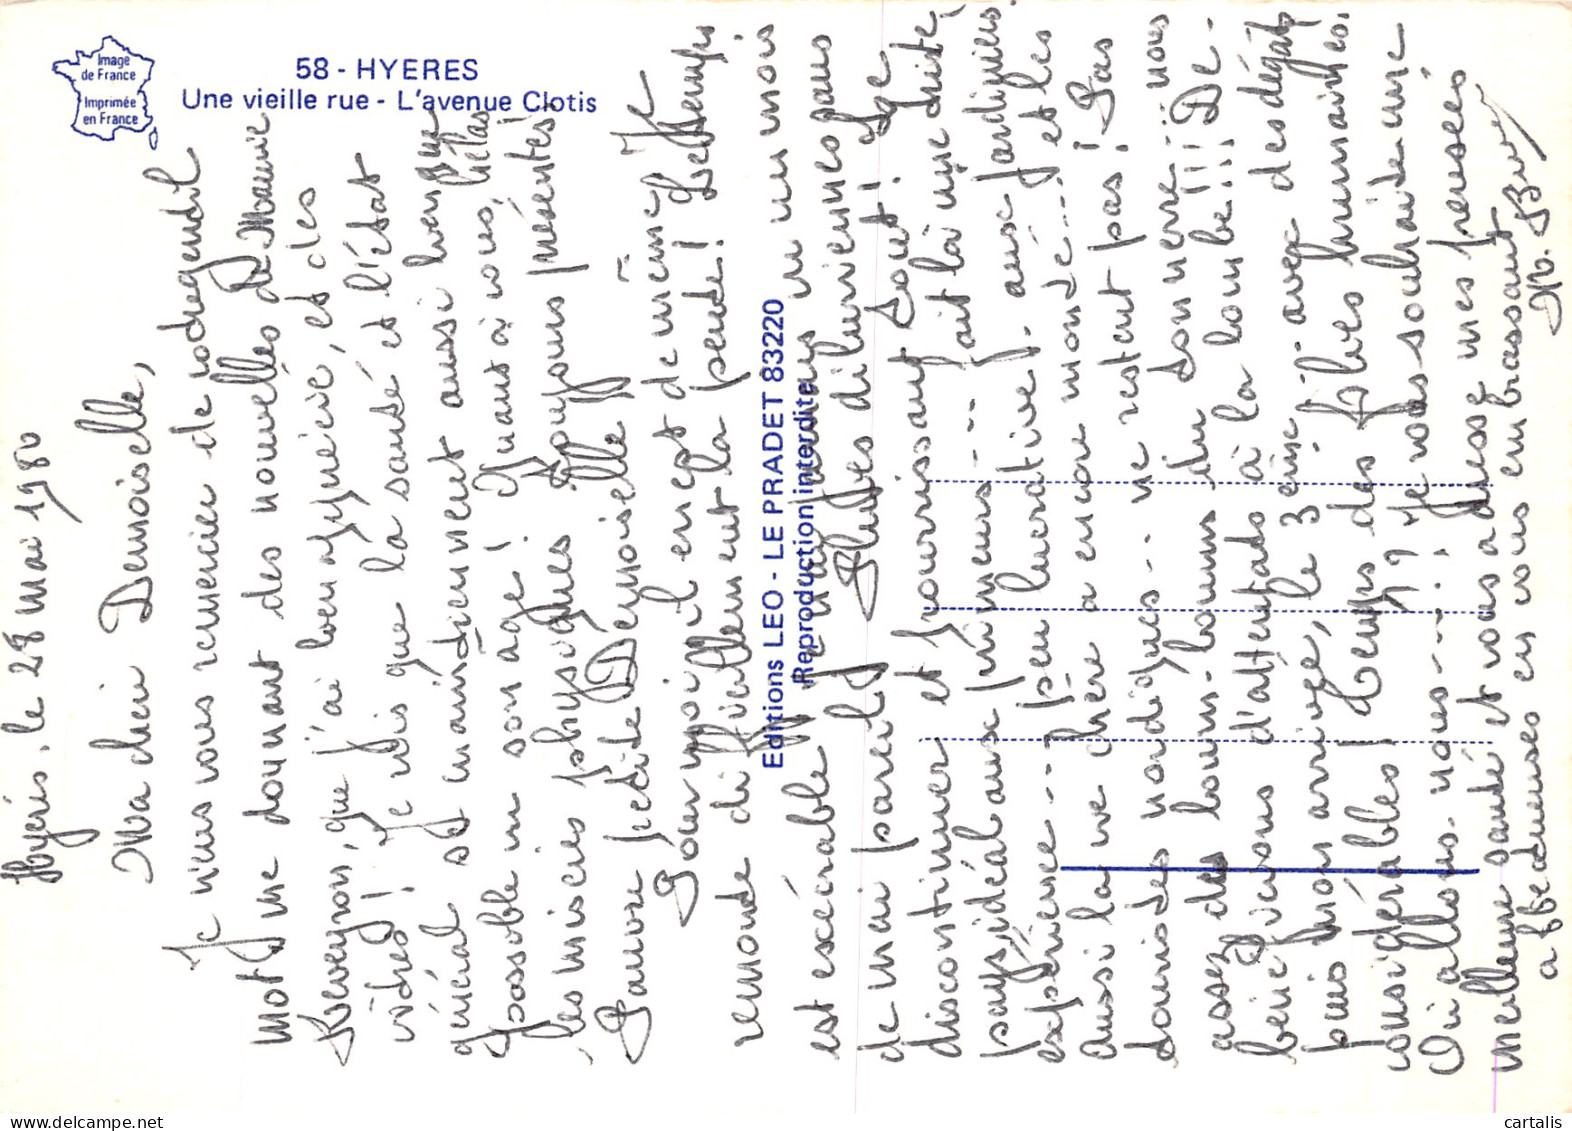 Image
de France
Imprimée
en France
58 - HYERES
Une vieille rue - L'avenue Clotis
Editions LEO - LE PRADET 83220
Reproduction interdite
Hyéres, le 28 mai 1980
Ma chère Demoiselle,
Je viens vous remercier de votre gentil
mot me donnant des nouvelles de Mamie
Aveyron, que j'ai bien appréciée, et des
vôtres! Je vois que la santé et l'état
général se maintiennent aussi bien que
possible vu son âge! Quant à vous, hélas
les misères physiques toujours présentes!
Pauvre petite Demoiselle!!
Pour moi il en est de même Je
remonte difficilement la pente! Le temps
est exécrable nous avons eu un mois
de mai pareil! Pluies diluviennes sans
discontinuer et pourrissant tout! Le
pays idéal aux primeurs --- fait là une triste
expérience --- peu lucrative! - aux jardiniers.
aussi la vie chère a encore monté... et les
touristes nordiques -- ne restent pas! Pas
assez des boum-boums du tonnerre - nous
bénéficions d'attentats à la bombe!!! De-
puis mon arrivée, le 3ème - avec des dégâts
considérables! Temps des folies humaines.
Où allons-nous ---?! Je vous souhaite une
meilleure santé et vous adresse mes pensées
affectueuses en vous embrassant
M. Bury
cartalis